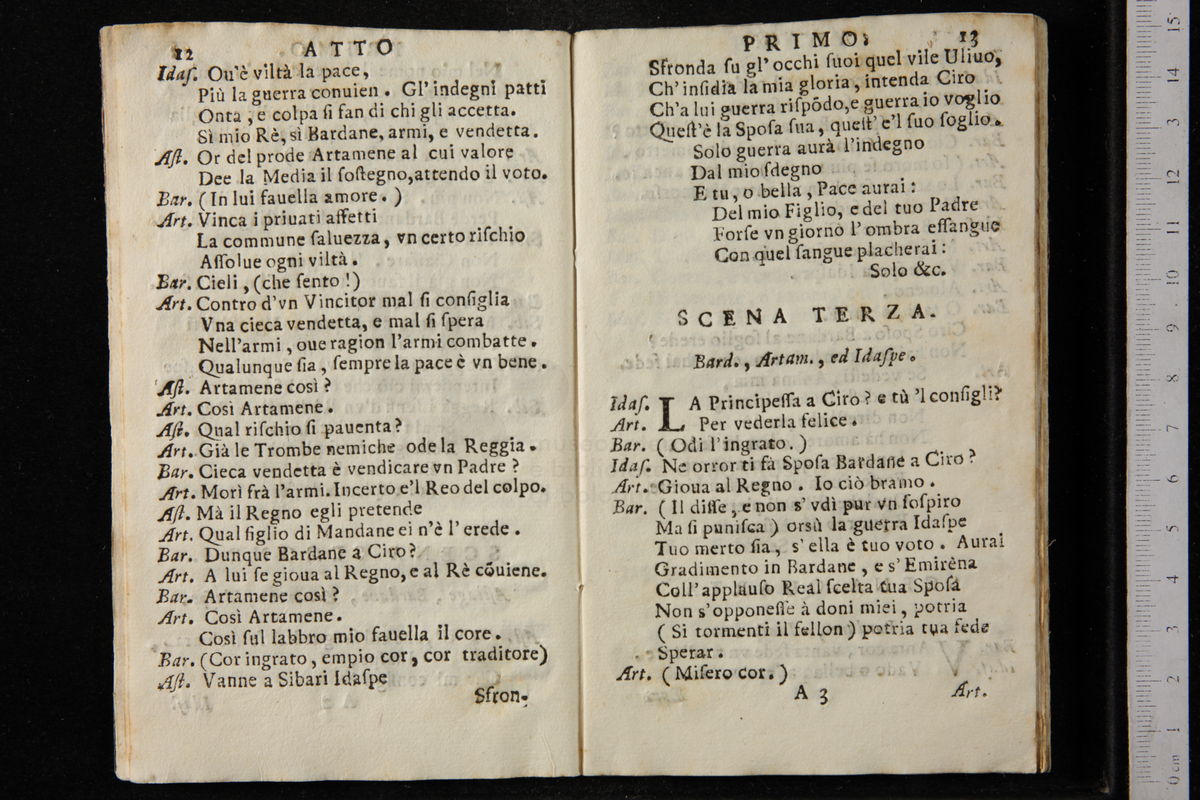 12 ATTO
Idaſ. Ou'è viltà la pace,
Più la guerra conuien. Gl'indegni patti
Onta, e colpa ſi fan di chi gli accetta.
Sì mio Rè, sì Bardane, armi, e vendetta.
Aſt. Or del prode Artamene al cui valore
Dee la Media il ſoſtegno, attendo il voto.
Bar. (In lui fauella amore.)
Art. Vinca i priuati affetti
La commune ſaluezza, vn certo riſchio
Aſſolue ogni viltà.
Bar. Cieli, (che ſento!)
Art. Contro d'vn Vincitor mal ſi conſiglia
Vna cieca vendetta, e mal ſi ſpera
Nell'armi, oue ragion l'armi combatte.
Qualunque ſia, ſempre la pace è vn bene.
Aſt. Artamene così?
Art. Così Artamene.
Aſt. Qual riſchio ſi pauenta?
Art. Già le Trombe nemiche ode la Reggia.
Bar. Cieca vendetta è vendicare vn Padre?
Art. Morì frà l'armi. Incerto e'l Reo del colpo.
Aſt. Mà il Regno egli pretende
Art. Qual figlio di Mandane ei n'è l'erede.
Bar. Dunque Bardane a Ciro?
Art. A lui ſe gioua al Regno, e al Rè cõuiene.
Bar. Artamene così?
Art. Così Artamene.
Così ſul labbro mio fauella il core.
Bar. (Cor ingrato, empio cor, cor traditore)
Aſt. Vanne a Sibari Idaſpe
Sfron-
PRIMO. 13
Sfronda ſu gl'occhi ſuoi quel vile Uliuo,
Ch'inſidia la mia gloria, intenda Ciro
Ch'a lui guerra riſpõdo, e guerra io voglio
Queſt'è la Spoſa ſua, queſt'e'l ſuo ſoglio.
Solo guerra aurà l'indegno
Dal mio ſdegno
E tu, o bella, Pace aurai:
Del mio Figlio, e del tuo Padre
Forſe vn giorno l'ombra eſſangue
Con quel ſangue placherai:
Solo &c.
SCENA TERZA.
Bard., Artam., ed Idaſpe.
Idaſ. LA Principeſſa a Ciro? e tù 'l conſigli?
Art. Per vederla felice.
Bar. (Odi l'ingrato.)
Idaſ. Ne orror ti fà Spoſa Bardane a Ciro?
Art. Gioua al Regno. Io ciò bramo.
Bar. (Il diſſe, e non s'vdì pur vn ſoſpiro
Ma ſi puniſca) orsù la guerra Idaſpe
Tuo merto ſia, s'ella è tuo voto. Aurai
Gradimento in Bardane, e s'Emirèna
Coll'applauſo Real ſcelta tua Spoſa
Non s'opponeſſe à doni miei, potria
(Si tormenti il fellon) potria tua fede
Sperar.
Art. (Miſero cor.)
A 3 Art.